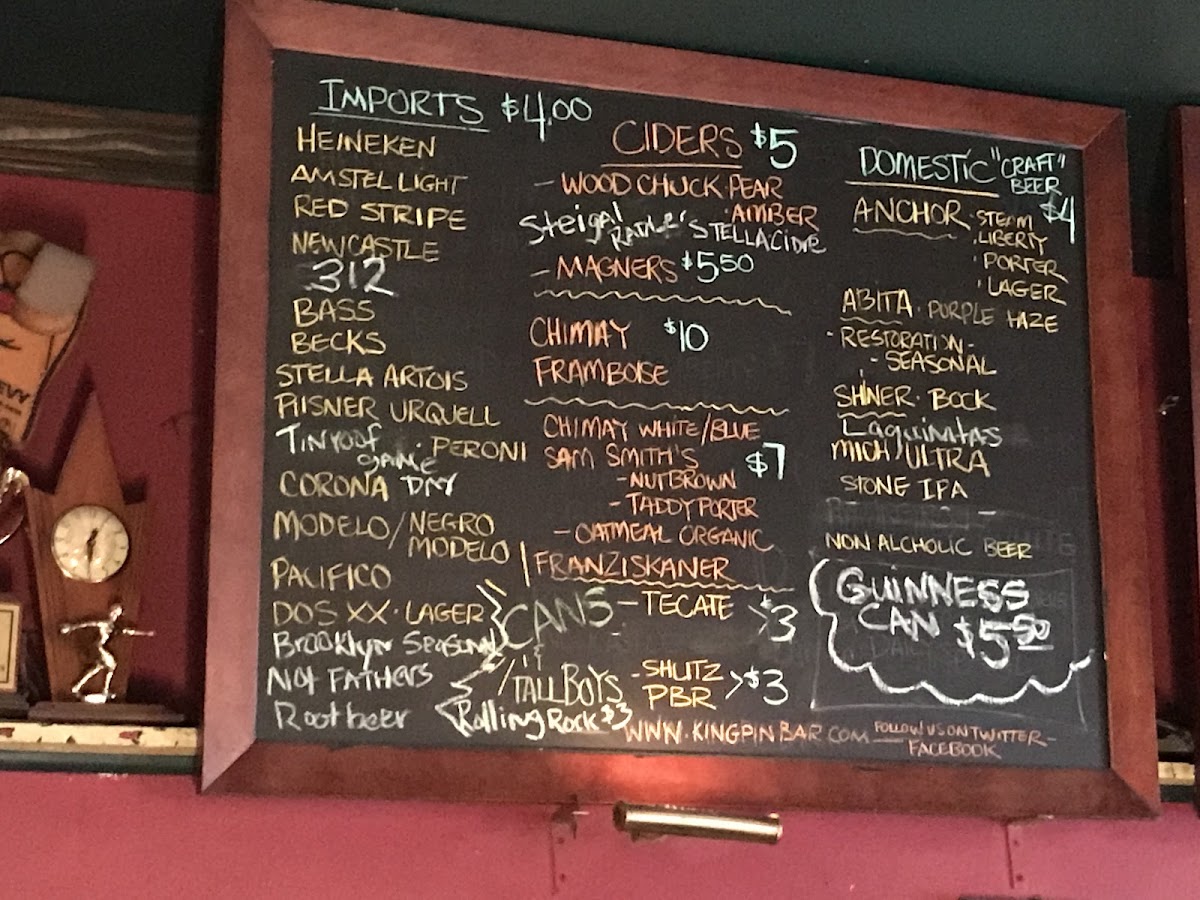 IMPORTS $4.00
HEINEKEN
AMSTEL LIGHT
RED STRIPE
NEWCASTLE
312
BASS
BECKS
STELLA ARTOIS
PILSNER URQUELL
Tinroof game · PERONI
CORONA
MODELO/NEGRO
MODELO
PACIFICO
DOS XX · LAGER
Brooklyn Seasonal
Not FATHERS
Rootbeer
CIDERS $5
- WOODCHUCK · PEAR
· AMBER
Steigal RADLER'S STELLA CIDRE
- MAGNERS $5.50
CHIMAY $10
FRAMBOISE
CHIMAY WHITE/BLUE
SAM SMITH'S $7
- NUTBROWN
- TADDY PORTER
- OATMEAL ORGANIC
FRANZISKANER
CANS - TECATE > $3
TALLBOYS - SHLITZ
PBR > $3
Rolling Rock $3
WWW.KINGPINBAR.COM
FOLLOW US ON TWITTER -
FACEBOOK
DOMESTIC "CRAFT"
BEER
$4
ANCHOR · STEAM
· LIBERTY
· PORTER
· LAGER
ABITA · PURPLE HAZE
- RESTORATION -
- SEASONAL
SHINER · BOCK
Laguinitas
MICH/ULTRA
STONE IPA
NON ALCHOLIC BEER
GUINNESS
CAN $5.50